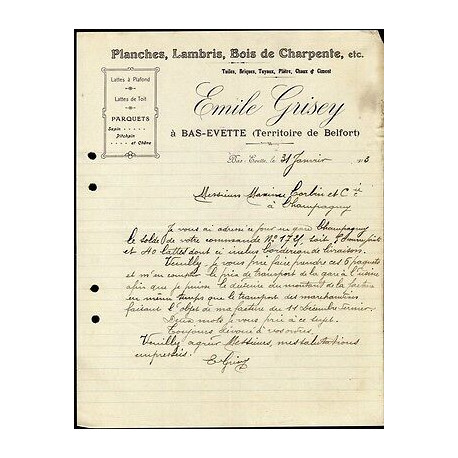 Planches, Lambris, Bois de Charpente, etc.
Tuiles, Briques, Tuyaux, Plâtre, Chaux & Ciment
Lattes à Plafond
Lattes de Toit
PARQUETS
Sapin
Pitchpin
et Chêne
Emile Grisey
à BAS-EVETTE (Territoire de Belfort)
Bas-Evette, le 31 Janvier
Messieurs Maxime Corbin et Cie
à Champagney
Je vous ai adressé ce jour en gare Champagney
le solde de votre commande No 1721. soit
et 40 lattes dont ci inclus bordereau de livraison.
Veuillez, je vous prie faire prendre ces 5 paquets
et m'en compter le prix de transport de la gare à l'usine
afin que je puisse le déduire du montant de la facture
en même temps que le transport des marchandises
faisant l'objet de ma facture du 11 Décembre dernier.
Deux mots je vous prie à ce sujet.
Toujours dévoué à vos ordres.
Veuillez agréer Messieurs, mes salutations
empressées
E Grisey